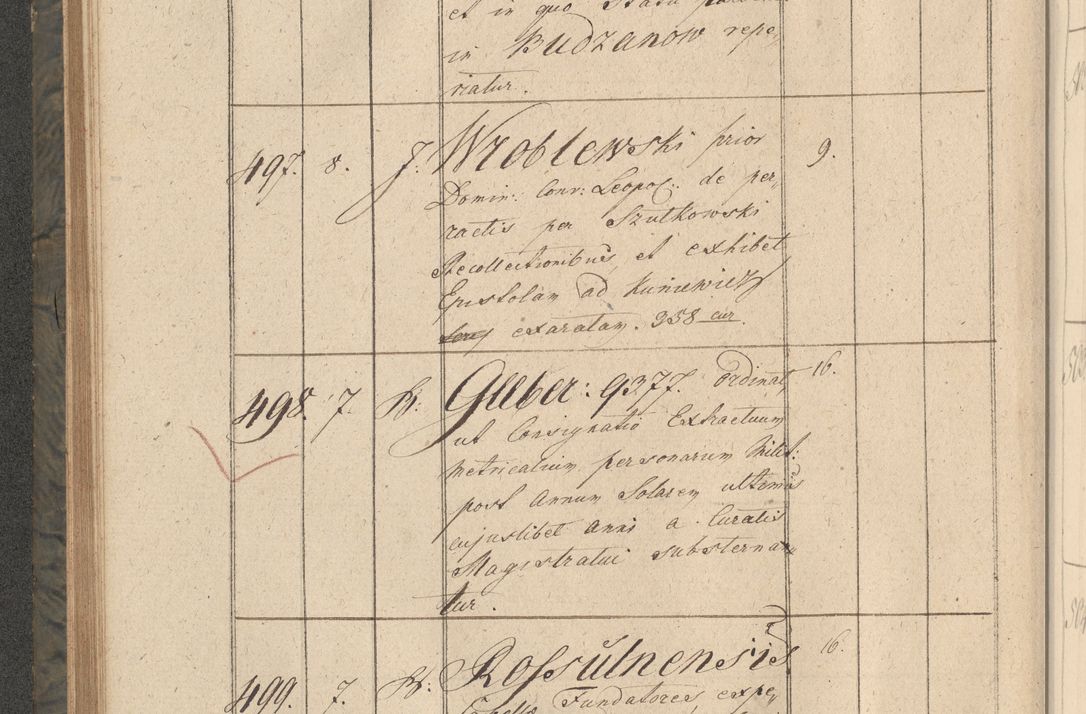 et in quo Statu
in Budzanow repe„
riatur.
497. 8. J: Wroblewski prior 9.
Domin: Conv: Leopol: de per„
ractis per Szutkowski
Recollectionibus, et exhibet
Epistolam ad Kuniewicz
exaratam. 358 cur.
498. 7. R: Guber: 9377. Ordinat, 16.
ut Consignatio Extractuum
metricalium personarum Milit:
post Annum Solarem ultimis
cujuslibet anni a Curatis
Magistratui substernan„
tur.
499. 7. R: Rossulnensis 16.
Fundatores, expe„